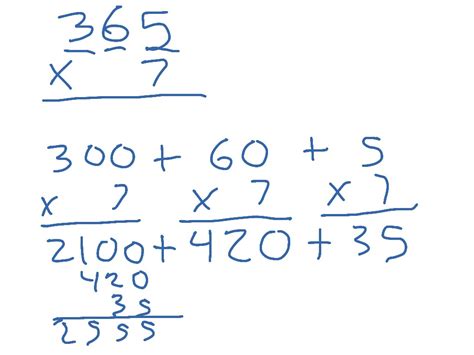 365
x 7
300 + 60 + 5
x 7 x 7 x 7
2100 + 420 + 35
420
35
2555